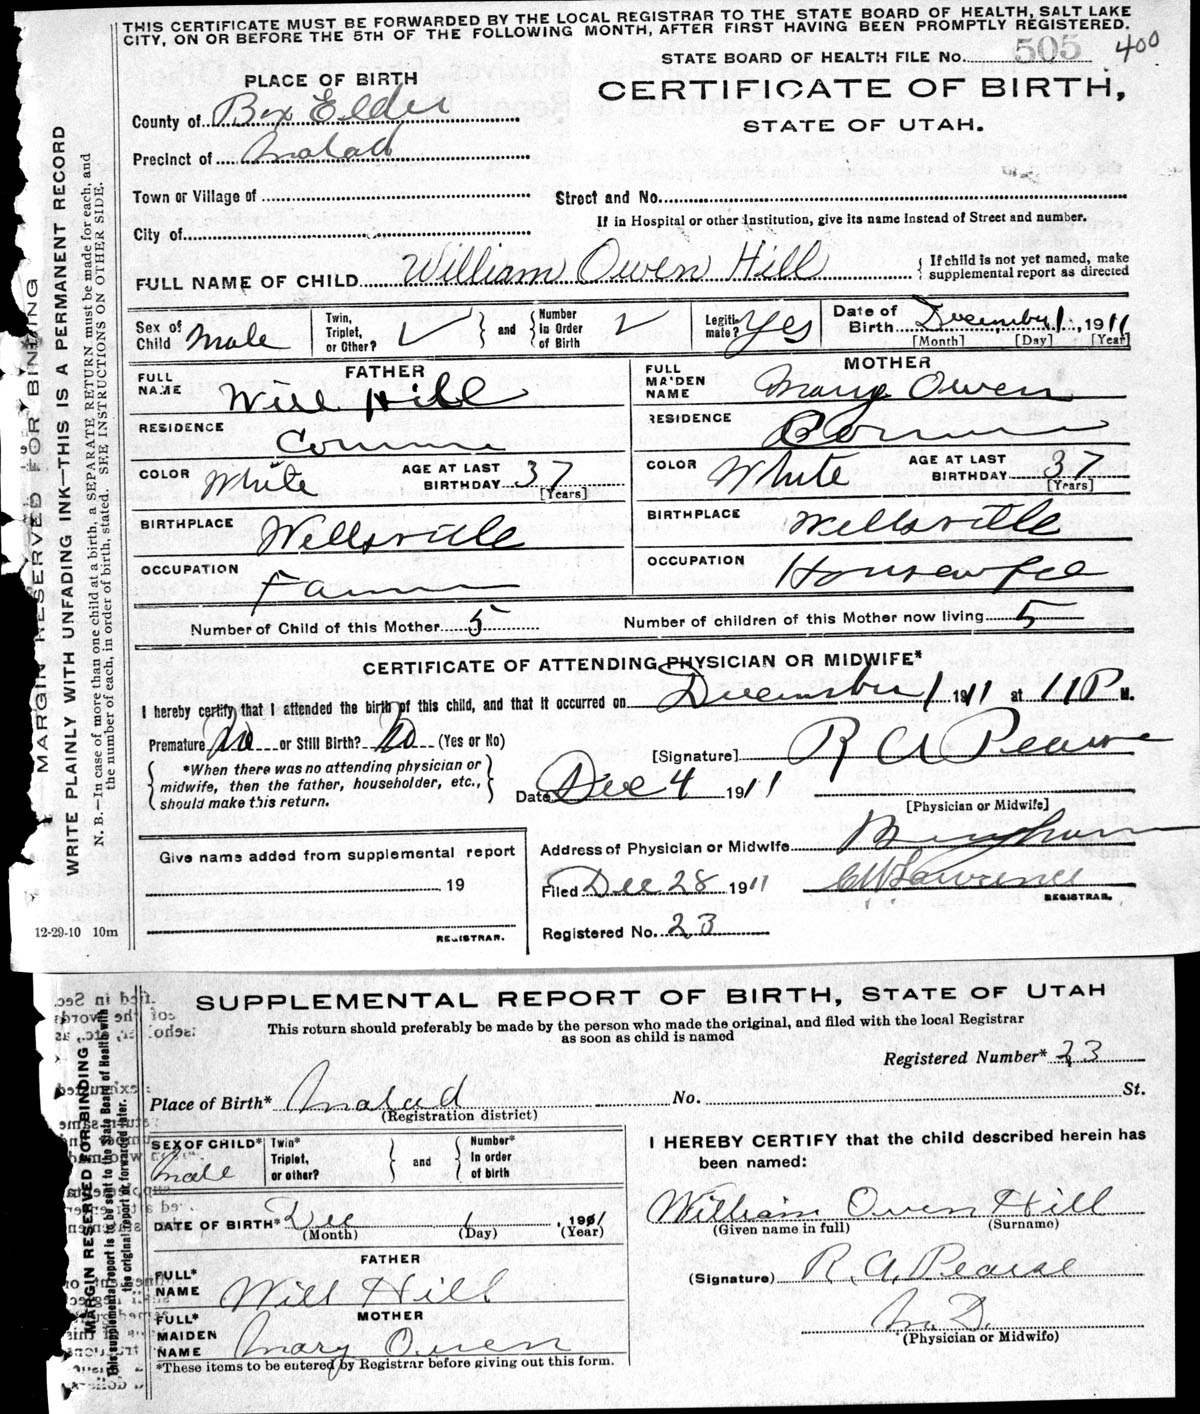 THIS CERTIFICATE MUST BE FORWARDED BY THE LOCAL REGISTRAR TO THE STATE BOARD OF HEALTH, SALT LAKE
CITY, ON OR BEFORE THE 5TH OF THE FOLLOWING MONTH, AFTER FIRST HAVING BEEN PROMPTLY REGISTERED.
STATE BOARD OF HEALTH FILE No. 505 400
PLACE OF BIRTH
CERTIFICATE OF BIRTH,
STATE OF UTAH.
County of Box Elder
Precinct of Malad
Town or Village of
Street and No.
If in Hospital or other Institution, give its name Instead of Street and number.
City of
FULL NAME OF CHILD William Owen Hill
{ If child is not yet named, make supplemental report as directed
Sex of Child Male
Twin, Triplet, or Other? ✓ } and { Number in Order of Birth ✓
Legitimate? Yes
Date of Birth December 1, 1911
[Month] [Day] [Year]
FATHER
MOTHER
FULL NAME Will Hill
FULL MAIDEN NAME Mary Owen
RESIDENCE Corinne
RESIDENCE Corinne
COLOR White AGE AT LAST BIRTHDAY 37 [Years]
COLOR White AGE AT LAST BIRTHDAY 37 [Years]
BIRTHPLACE Wellsville
BIRTHPLACE Wellsville
OCCUPATION Farmer
OCCUPATION Housewife
Number of Child of this Mother 5
Number of children of this Mother now living 5
CERTIFICATE OF ATTENDING PHYSICIAN OR MIDWIFE*
I hereby certify that I attended the birth of this child, and that it occurred on December 1 1911 at 11 P M.
Premature No or Still Birth? No (Yes or No)
[Signature] R A Pearse
{ *When there was no attending physician or midwife, then the father, householder, etc., should make this return. }
Date Dec 4 1911
[Physician or Midwife]
Give name added from supplemental report
19
REGISTRAR.
Address of Physician or Midwife Brigham
Filed Dec 28 1911 C W Lawrence
REGISTRAR.
Registered No. 23
12-29-10 10m
MARGIN RESERVED FOR BINDING
WRITE PLAINLY WITH UNFADING INK—THIS IS A PERMANENT RECORD
N. B.—In case of more than one child at a birth, a SEPARATE RETURN must be made for each, and
the number of each, in order of birth, stated. SEE INSTRUCTIONS ON OTHER SIDE.
SUPPLEMENTAL REPORT OF BIRTH, STATE OF UTAH
This return should preferably be made by the person who made the original, and filed with the local Registrar
as soon as child is named
Registered Number* 23
Place of Birth* Malad No. St.
(Registration district)
SEX OF CHILD* Male
Twin* Triplet, or other? } and { Number* In order of birth
DATE OF BIRTH* Dec 1, 1911
(Month) (Day) (Year)
FATHER
FULL* NAME Will Hill
MOTHER
FULL* MAIDEN NAME Mary Owen
*These items to be entered by Registrar before giving out this form.
I HEREBY CERTIFY that the child described herein has
been named:
William Owen Hill
(Given name in full) (Surname)
(Signature) R. A. Pearse
M. D.
(Physician or Midwife)
MARGIN RESERVED FOR BINDING
This supplemental report is to be sent to the State Board of Health with
the original report or, if forwarded later.